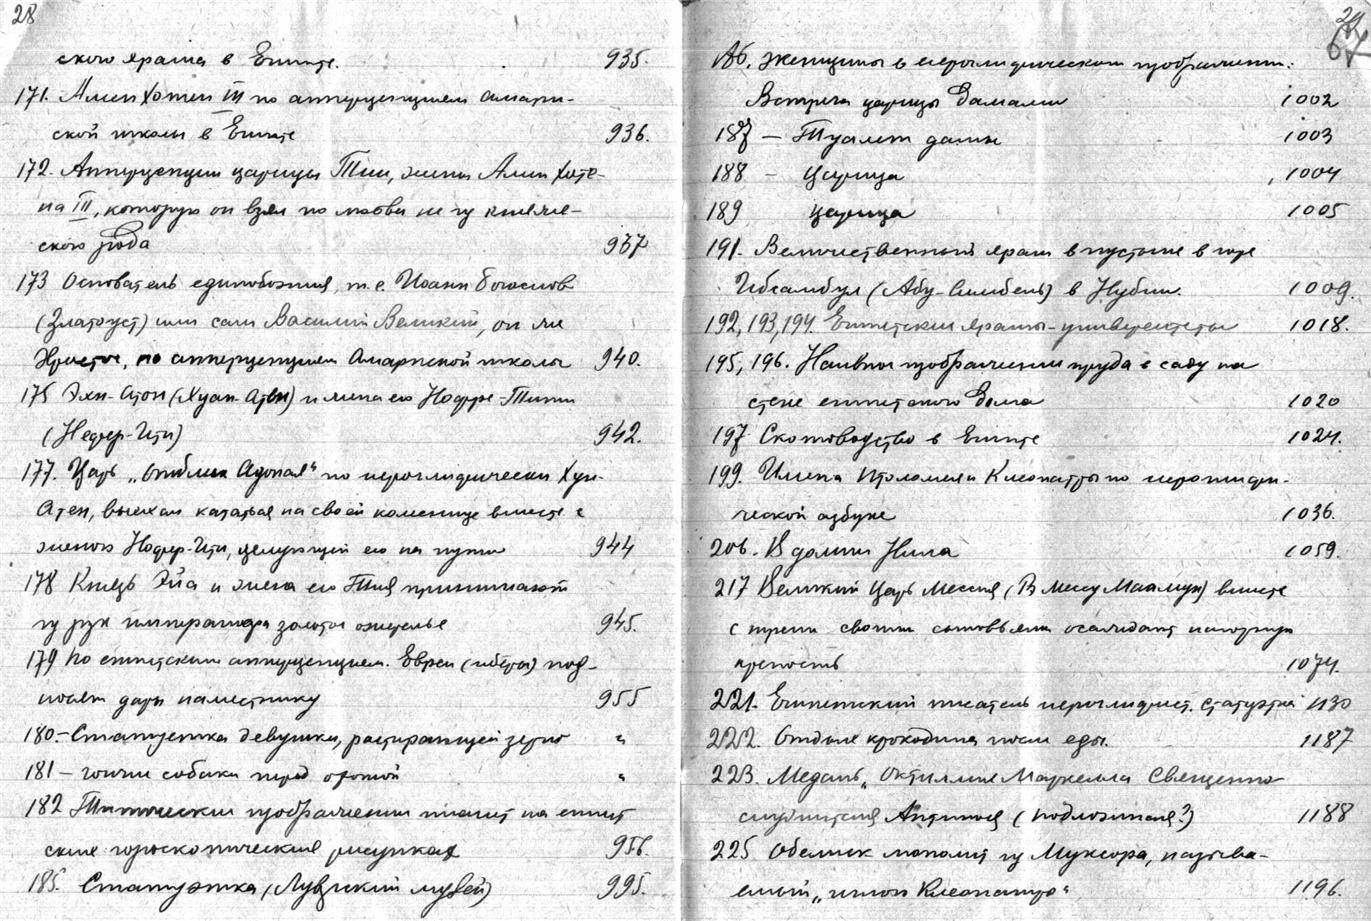 28
ского храма в Египте. 935.
171. Аменхотеп III по аппрцепциям амарн-
ской школы в Египте 936.
172. Аппрцепции царицы Тии, жены Аменхоте-
па III, которую он взял по любви не из княже-
ского рода 937
173 Основатель единобожия, т.е. Иоанн богослов
(Златоуст) или сам Василий Великий, он же
Христос, по аппрцепциям Амарнской школы 940.
175 Эхн-Атон (Хуан Атен) и жена его Нофре-Тити
(Нефер-Ити) 942.
177. Царь „ Адоная" по иероглифически Хун-
Атен, выехал кататься на своей колеснице вместе с
женою Нофер-Ити, целующей его на пути 944
178 Князь Эйа и жена его Тия принимают
из рук императора золотое ожерелье 945.
179 По египетским аппрцепциям. Евреи (иберы) под-
носят дары наместнику 955
180.- Статуетка девушки, растирающей зерно "
181 - гончие собаки перед охотой "
182 Типические изображения планет на египет
ские гороскопические рисунках 956.
185. Статуэтка (Луврский музей) 995.
67
186. Женщины в иероглифическом изображении:
Встреча царицы дамами 1002
187 - Туалет дамы 1003
188 - Царица 1004
189 царица 1005
191. Величественный храм в пустыне в горе
Ибсамбул (Абу-Симбель) в Нубии. 1009.
192, 193, 194. Египетские храмы-университеты 1018.
195, 196. Наивное изображение пруда в саду на
стене египетского дома 1020
197 Скотоводство в Египте 1024.
199. Имена Птоломея и Клеопатры по иероглифи-
ческой азбуке 1036.
206. В долине Нила 1059.
217 Великий Царь Мессия (Рамессу Миамун) вместе
с тремя своими сыновьями осаждает нагорную
крепость 1074.
221. Египетский писатель иероглифист. статуэтка 1130
222. Отдых крокодила после еды. 1187
223. Медаль „ Маркелла Священно
служителя Антиноя (подложная?) 1188
225 Обелиск монолит из Луксора, называ-
емый „игла Клеопатры" 1196.